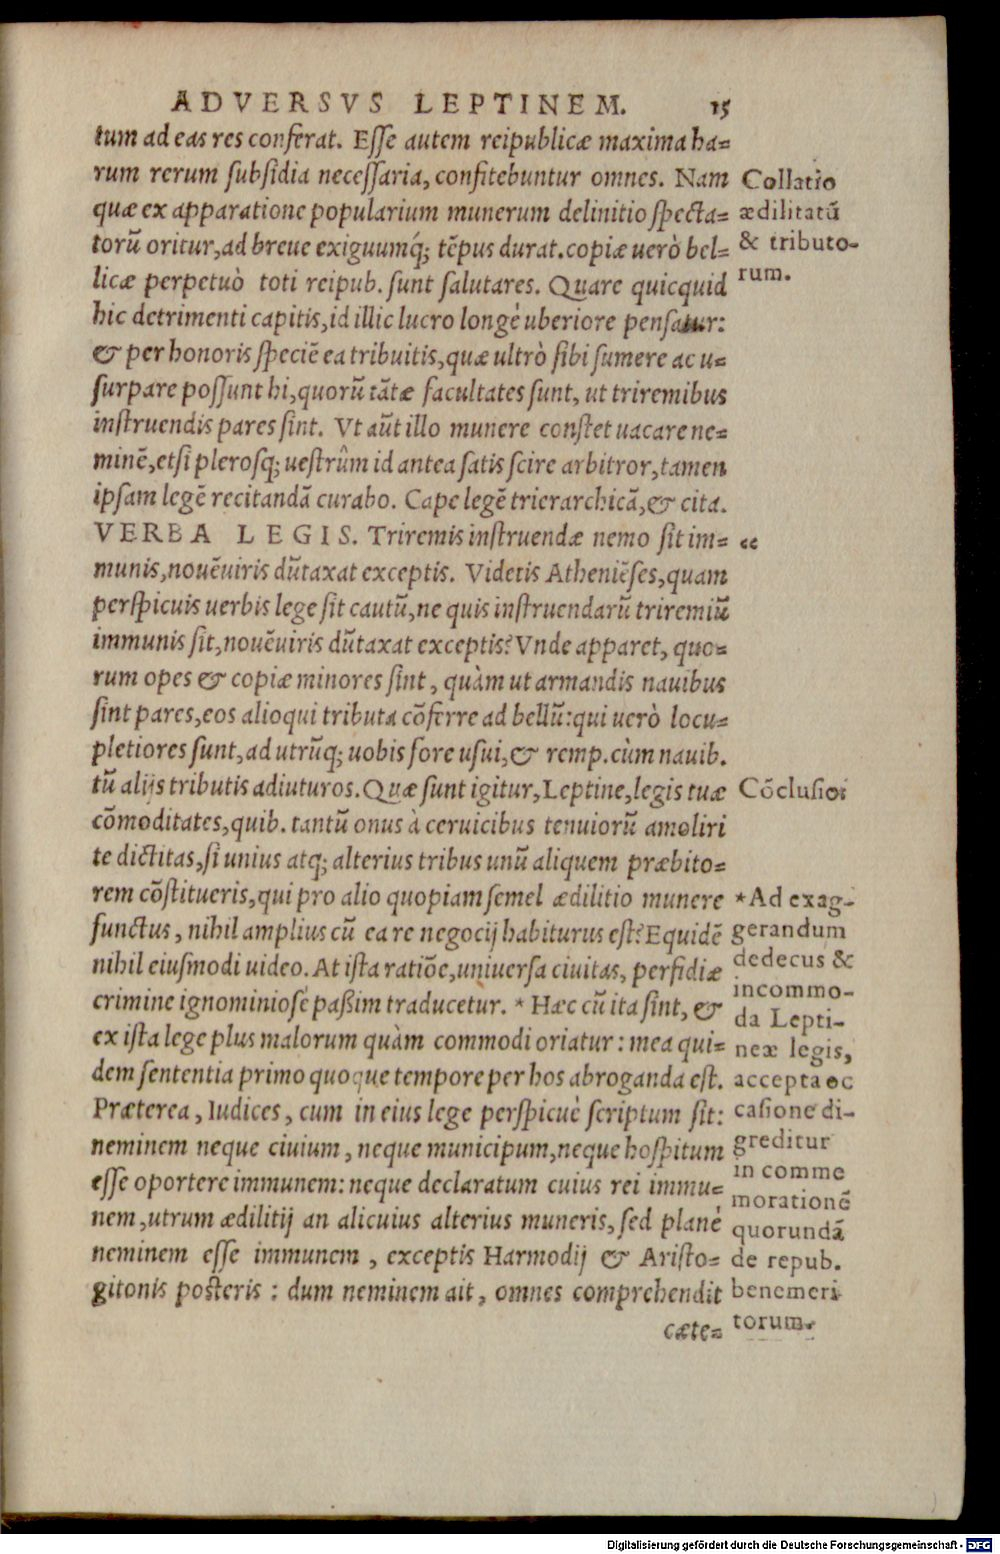 ADVERSVS LEPTINEM. 15
tum ad eas res conferat. Esse autem reipublicæ maxima ha=
rum rerum subsidia necessaria, confitebuntur omnes. Nam
quæ ex apparatione popularium munerum delinitio specta=
torū oritur, ad breue exiguumq́; tēpus durat. copiæ uerò bel=
licæ perpetuò toti reipub. sunt salutares. Quare quicquid
hic detrimenti capitis, id illic lucro longè uberiore pensatur:
& per honoris speciē ea tribuitis, quæ ultrò sibi sumere ac u=
surpare possunt hi, quorū tātæ facultates sunt, ut triremibus
instruendis pares sint. Vt aūt illo munere constet uacare ne=
minē, etsi plerosq; uestrûm id antea satis scire arbitror, tamen
ipsam legē recitandā curabo. Cape legē trierarchicā, & cita.
VERBA LEGIS. Triremis instruendæ nemo sit im=
munis, nouēuiris dūtaxat exceptis. Videtis Atheniēses, quam
perspicuis uerbis lege sit cautū, ne quis instruendarū triremiū
immunis sit, nouēuiris dūtaxat exceptis? Vnde apparet, quo=
rum opes & copiæ minores sint, quàm ut armandis nauibus
sint pares, eos alioqui tributa cōferre ad bellū: qui uerò locu=
pletiores sunt, ad utrūq; uobis fore usui, & remp. cùm nauib.
tū alijs tributis adiuturos. Quæ sunt igitur, Leptine, legis tuæ
cōmoditates, quib. tantū onus à ceruicibus tenuiorū amoliri
te dictitas, si unius atq; alterius tribus unū aliquem præbito=
rem cōstitueris, qui pro alio quopiam semel ædilitio munere
functus, nihil amplius cū ea re negocij habiturus est? Equidē
nihil eiusmodi uideo. At ista ratiōe, uniuersa ciuitas, perfidiæ
crimine ignominiosè paßim traducetur. * Hæc cū ita sint, &
ex ista lege plus malorum quàm commodi oriatur: mea qui=
dem sententia primo quoque tempore per hos abroganda est.
Præterea, Iudices, cum in eius lege perspicuè scriptum sit:
neminem neque ciuium, neque municipum, neque hospitum
esse oportere immunem: neque declaratum cuius rei immu=
nem, utrum ædilitij an alicuius alterius muneris, sed planè
neminem esse immunem, exceptis Harmodij & Aristo=
gitonis posteris: dum neminem ait, omnes comprehendit
cæte=
Collatio
ædilitatū
& tributo-
rum.
“
Cōclusioi
*Ad exag-
gerandum
dedecus &
incommo-
da Lepti-
neæ legis,
accepta oc
casione di-
greditur
in comme
morationē
quorundā
de repub.
benemeri
torum.
Digitalisierung gefördert durch die Deutsche Forschungsgemeinschaft - DFG